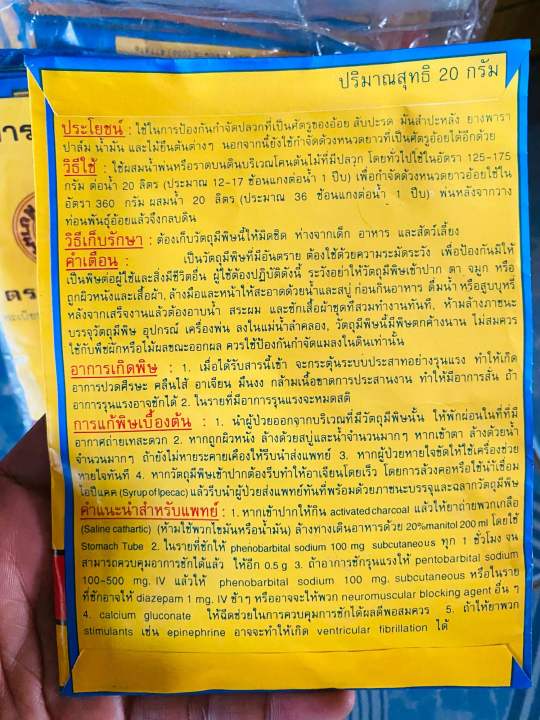 ปริมาณสุทธิ 20 กรัม
ประโยชน์ : ใช้ในการป้องกันกำจัดปลวกที่เป็นศัตรูของอ้อย สับปะรด มันสำปะหลัง ยางพารา
ปาล์ม น้ำมัน และไม้ยืนต้นต่างๆ นอกจากนี้ยังใช้กำจัดด้วงหนวดยาวที่เป็นศัตรูอ้อยได้อีกด้วย
วิธีใช้ : ใช้ผสมน้ำพ่นหรือราดบนดินบริเวณโคนต้นไม้ที่มีปลวก โดยทั่วไปใช้ในอัตรา 125-175
กรัม ต่อน้ำ 20 ลิตร (ประมาณ 12-17 ช้อนแกงต่อน้ำ 1 ปีบ) เพื่อกำจัดด้วงหนวดยาวอ้อยใช้ใน
อัตรา 360 กรัม ผสมน้ำ 20 ลิตร (ประมาณ 36 ช้อนแกงต่อน้ำ 1 ปีบ) พ่นหลังจากวาง
ท่อนพันธุ์อ้อยแล้วจึงกลบดิน
วิธีเก็บรักษา : ต้องเก็บวัตถุมีพิษนี้ให้มิดชิด ห่างจากเด็ก อาหาร และสัตว์เลี้ยง
คำเตือน : เป็นวัตถุมีพิษที่มีอันตราย ต้องใช้ด้วยความระมัดระวัง เพื่อป้องกันมิให้
เป็นพิษต่อผู้ใช้และสิ่งมีชีวิตอื่น ผู้ใช้ต้องปฏิบัติดังนี้ ระวังอย่าให้วัตถุมีพิษเข้าปาก ตา จมูก หรือ
ถูกผิวหนังและเสื้อผ้า, ล้างมือและหน้าให้สะอาดด้วยน้ำและสบู่ ก่อนกินอาหาร ดื่มน้ำ หรือสูบบุหรี่
หลังจากเสร็จงานแล้วต้องอาบน้ำ สระผม และซักเสื้อผ้าชุดที่สวมทำงานทันที, ห้ามล้างภาชนะ
บรรจุวัตถุมีพิษ อุปกรณ์ เครื่องพ่น ลงในแม่น้ำลำคลอง, วัตถุมีพิษนี้มีพิษตกค้างนาน ไม่สมควร
ใช้กับพืชผักหรือไม้ผลขณะออกผล ควรใช้ป้องกันกำจัดแมลงในดินเท่านั้น
อาการเกิดพิษ : 1. เมื่อได้รับสารนี้เข้า จะกระตุ้นระบบประสาทอย่างรุนแรง ทำให้เกิด
อาการปวดศีรษะ คลื่นไส้ อาเจียน มึนงง กล้ามเนื้อขาดการประสานงาน ทำให้มีอาการสั่น ถ้า
อาการรุนแรงอาจชักได้ 2. ในรายที่มีอาการรุนแรงจะหมดสติ
การแก้พิษเบื้องต้น : 1. นำผู้ป่วยออกจากบริเวณที่มีวัตถุมีพิษนั้น ให้พักผ่อนในที่ที่มี
อากาศถ่ายเทสะดวก 2. หากถูกผิวหนัง ล้างด้วยสบู่และน้ำจำนวนมากๆ หากเข้าตา ล้างด้วยน้ำ
จำนวนมากๆ ถ้ายังไม่หายระคายเคืองให้รีบนำส่งแพทย์ 3. หากผู้ป่วยหายใจขัดให้ใช้เครื่องช่วย
หายใจทันที 4. หากวัตถุมีพิษเข้าปากต้องรีบทำให้อาเจียนโดยเร็ว โดยการล้วงคอหรือใช้น้ำเชื่อม
ไอปีแคค (Syrup of Ipecac) แล้วรีบนำผู้ป่วยส่งแพทย์ทันทีพร้อมด้วยภาชนะบรรจุและฉลากวัตถุมีพิษ
คำแนะนำสำหรับแพทย์ : 1. หากเข้าปากให้กิน activated charcoal แล้วให้ยาถ่ายพวกเกลือ
(Saline cathartic) (ห้ามใช้พวกไขมันหรือน้ำมัน) ล้างทางเดินอาหารด้วย 20%manitol 200 ml โดยใช้
Stomach Tube 2. ในรายที่ชักให้ phenobarbital sodium 100 mg subcutaneous ทุก 1 ชั่วโมง จน
สามารถควบคุมอาการชักได้แล้ว ให้อีก 0.5 g 3. ถ้าอาการชักรุนแรงให้ pentobarbital sodium
100-500 mg. IV แล้วให้ phenobarbital sodium 100 mg. subcutaneous หรือในราย
ที่ชักอาจให้ diazepam 1 mg. IV ช้าๆ หรืออาจจะให้พวก neuromuscular blocking agent อื่น ๆ
4. calcium gluconate ให้ฉีดช่วยในการควบคุมการชักได้ผลดีพอสมควร 5. ถ้าให้ยาพวก
stimulants เช่น epinephrine อาจจะทำให้เกิด ventricular fibrillation ได้